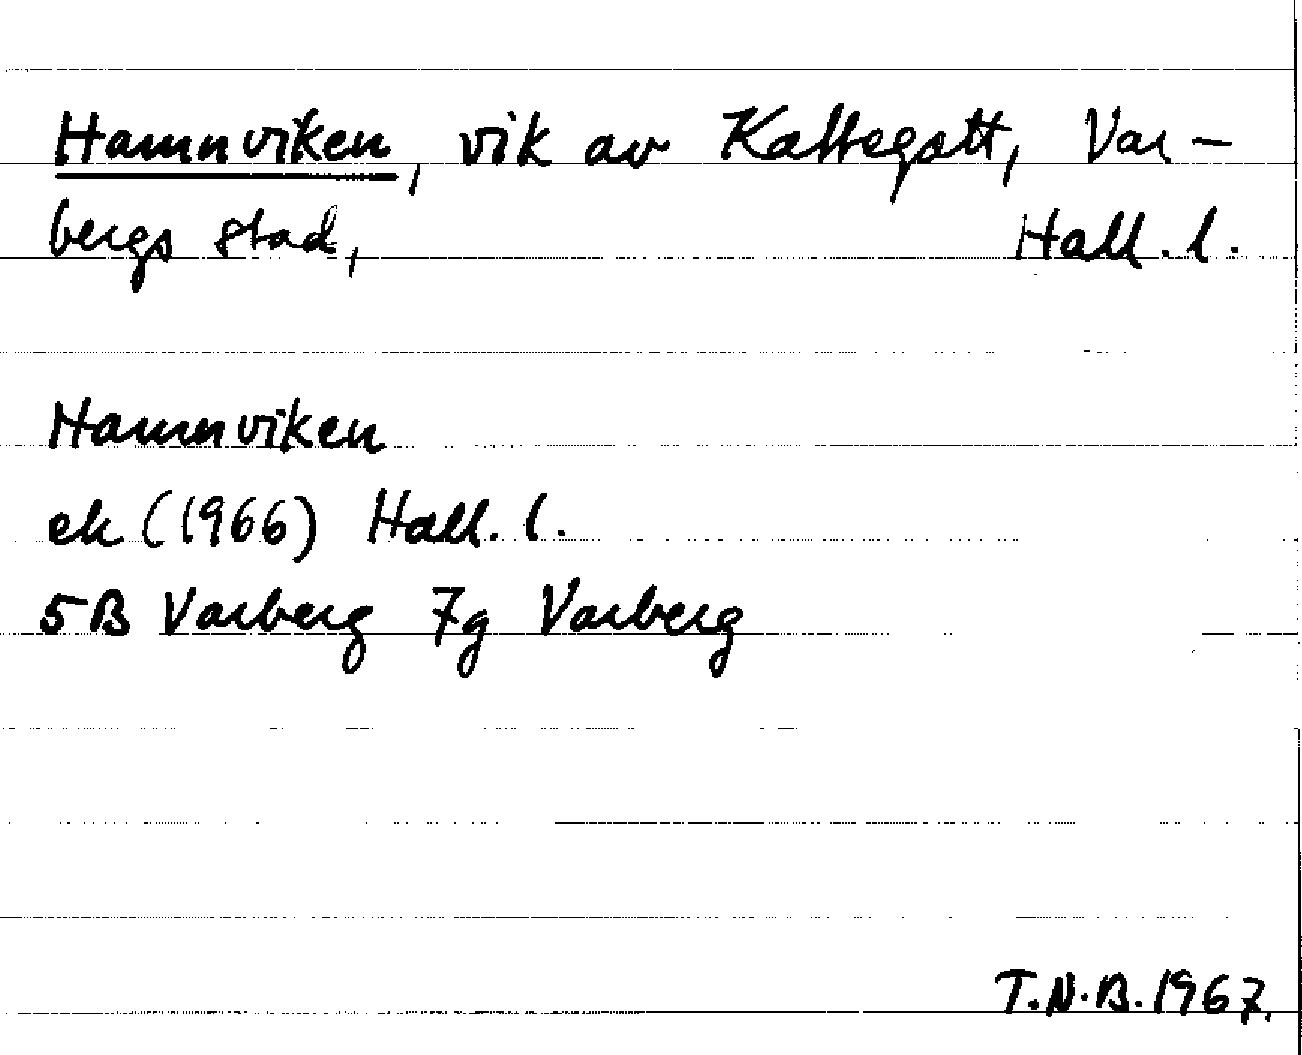 Hamnviken, vik av Kattegatt, Var-
bergs stad, Hall. l.
Hamnviken
ek (1966) Hall. l.
5B Varberg 7g Varberg
T.N.B. 1967.